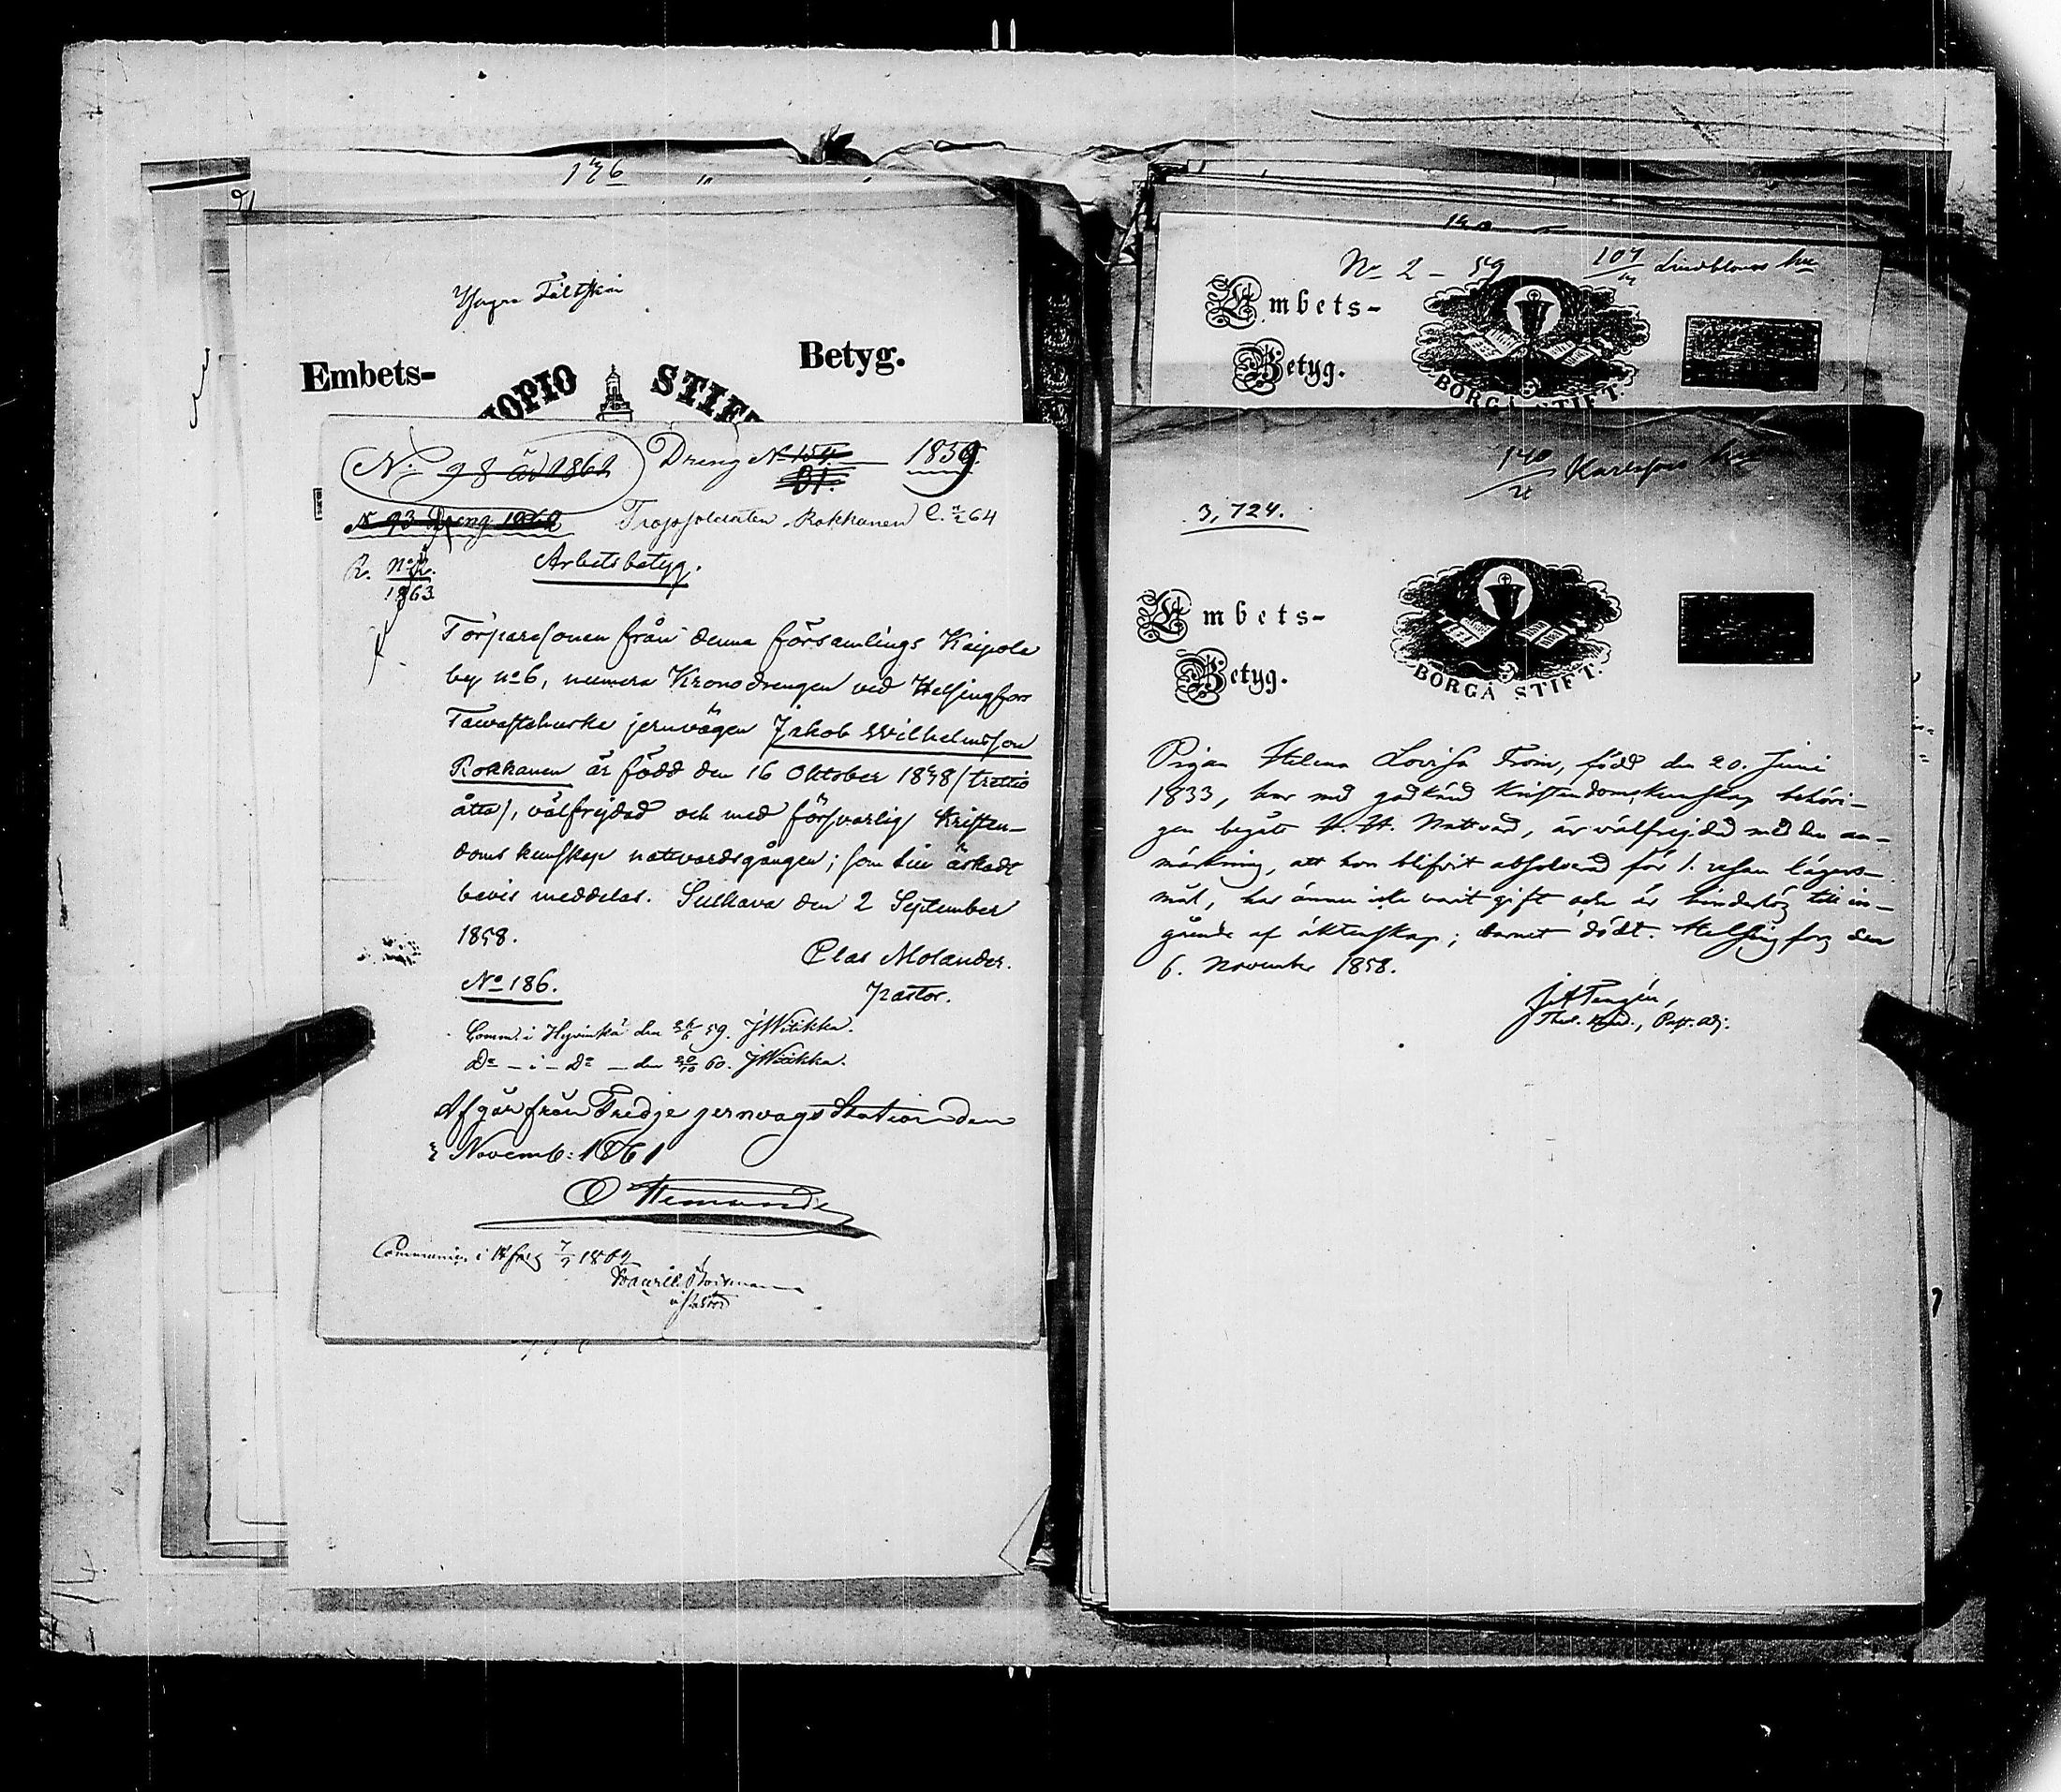 176
Yngre Fältskär
Embets- Betyg.
KUOPIO STIFT
No 98 år 1862 Dreng No 154 1859.
81.
N 93 Dreng 1862 Trossoldaten Rokkanen
R. No 2.
1863
Arbetsbetyg.
Torparesonen från denna församlings Kaipola
by no 6, numera Kronodrengen vid Helsingfors
Tawastehuske jernvägen Jakob Wilhelmsson
Rokkanen är född den 16 Oktober 1838 (trettio
åtta), välfrejdad och med försvarlig Kristen-
doms kunskap nattvardsgången; som till äskadt
bevis meddelas. Sulkava den 2 September
1858.
Clas Molander.
No 186.
Pastor.
Comm. i Hyvinkä den 59. JWitikka.
Do - i - Do - den 20/10 60. JWitikka.
Afgår från Tredje jernvägs Station den
Novemb: 1861
Communic. i Hfors 7/2 1862
No 2 - 59
107 Lindbloms hus
Embets-
Betyg.
BORGÅ STIFT.
140 Karlssons hus
3,724.
Embets-
Betyg.
BORGÅ STIFT.
Pigan Helena Lovisa From, född den 20. Juni
1833, har med godkänd Kristendomskunskap behöri-
gen begått H. H. Nattvard, är välfrejdad med den an-
märkning, att hon blifvit absolverad för 1. resan lägers-
mål, har ännu icke varit gift och är hinderlös till in-
gående af äktenskap; barnet dödt. Helsingfors den
6. November 1858.
Past. Adj.